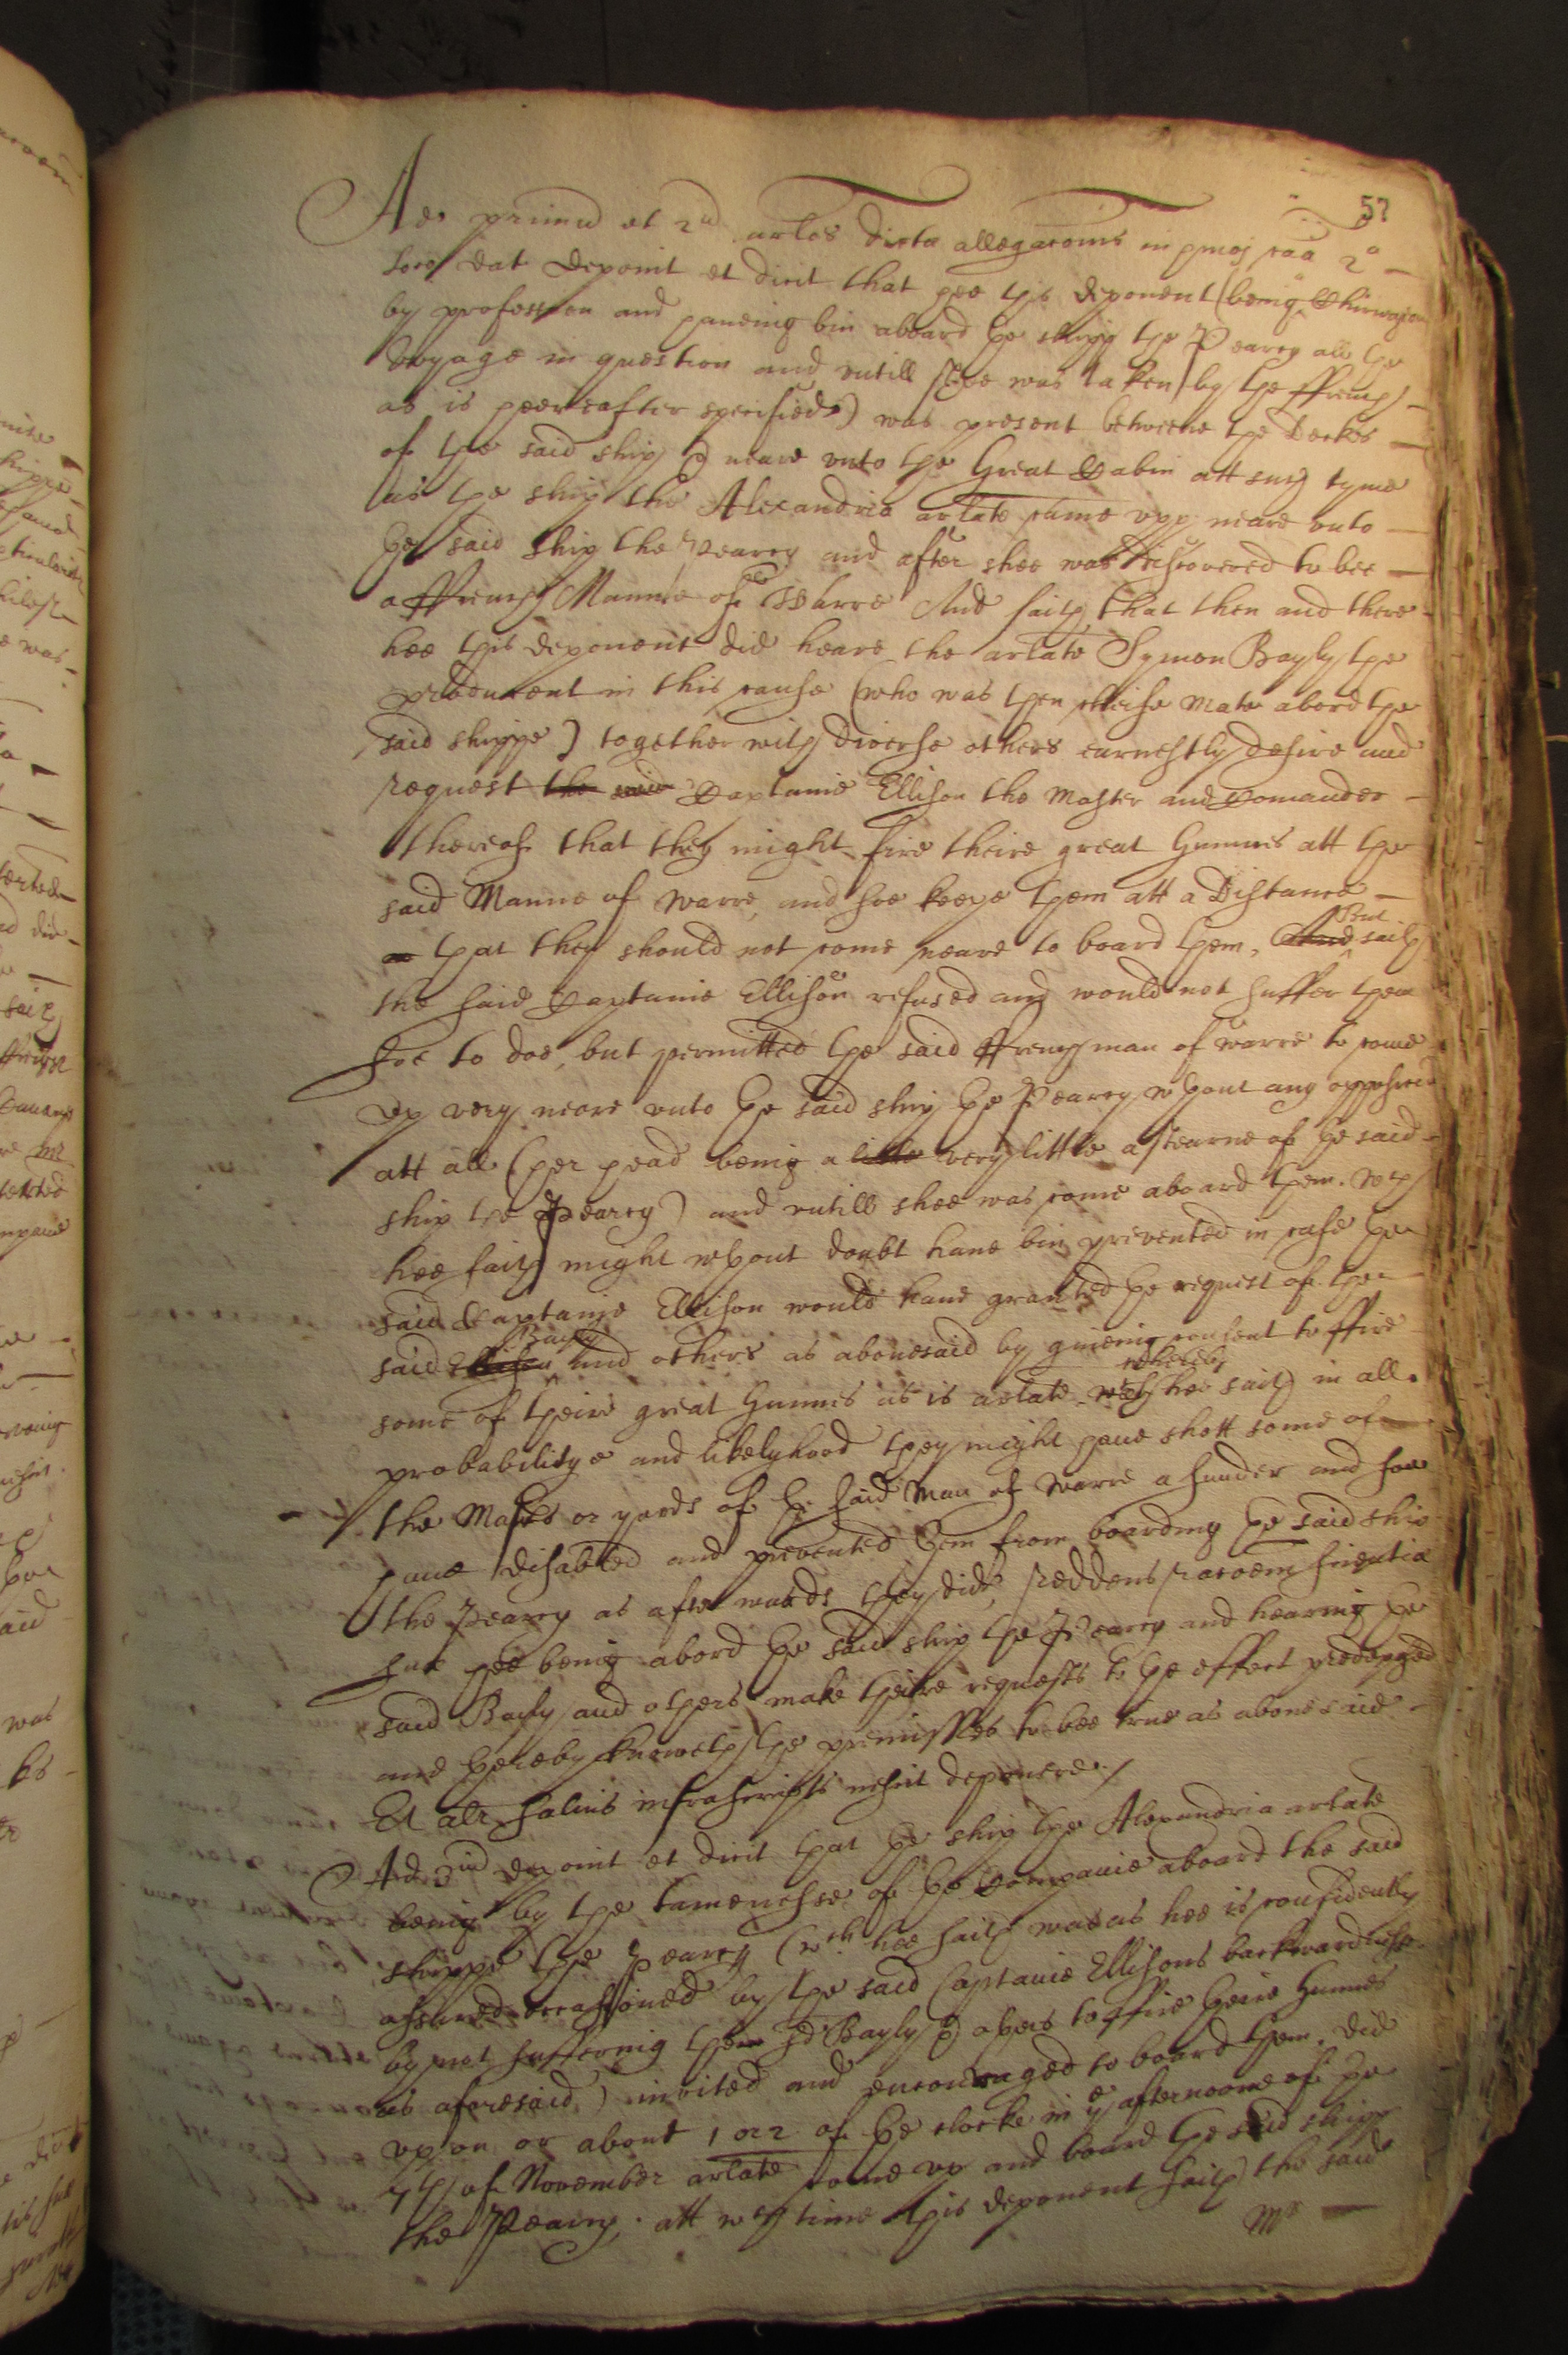 57
Ad primu et 2ud arlos dictæ allegaconis in pmoj caa 2o
loco dat deponit et dicit that hee this deponent (being a Chirurgion
by profession and haueing bin aboard the shipp the Pearey all the
voyage in question and vntill shee was taken by the ffrench
as is heereafter specified) was present betweene the Deckes
of the said ship & neare vnto the Great Cabin att such tyme
as the ship the Alexandria arlate came vpp neare vnto
the said ship the Pearcy and after shee was discovered to bee
a ffrench Manne of Warre And saith that then and there
hee this deponent did heare the arlate Symon Bayly the
producent in this cause (who was then cheife Mate abord the
said shippe) together with diverse others earnestly desire and
request the said Captaine Ellison the Master and Comander
thereof that they might fire theire great Gunnes att the
said Manne of Warre, and soe keepe them att a Distance
that they should not come neare to board them, And But saith
the said Captaine Ellison refused and would not suffer them
soe to doe, but permitted the said ffrench man of warre to come
vp very neare vnto the said ship the Pearcy wthout any opposicon
att all (her head being a little very little astearne of the said
ship the Pearcy) and vntill shee was come aboard them. wch
hee saith might wthout doubt haue bin prevented in case the
said Captaine Ellison would haue granted the request of the
said Ellison Bayly and others as abouesaid by giueing consent to ffire
some of theire great Gunnes as is arlate wch whereby hee saith in all
probabilitye and likelyhood they might haue shott some of
the Masts or yards of the said Man of Warre asunder and soe
haue disabled and prevented them from boarding the said ship
the Pearcy as afterwards they did, reddens racoem scientiæ
suæ hee being abord the said ship the Pearcy and hearing the
said Bayly and others make theire requests to the effect predeposed
and thereby knoweth the premisses to bee true as abouesaid
Et alr salvis infrascriptis nescit deponere./
Ad 3ium deponit et dicit that the ship the Alexandria arlate
being by the tamenesse of the Companie aboard the said
shippe the Pearcy (wch hee saith was as hee is confidently
assured occasioned by the said Captaine Ellisons backwardnesse
by not suffering them sd Bayly & others to ffire theire Gunnes
as aforesaid) invited and encouraged to board them, did
vpon or about 1 or 2 of the clocke in ye afternoone of the
7th of November arlate come vp and board the said shipp
the Pearcy. att wch time this deponent saith the said
Mr